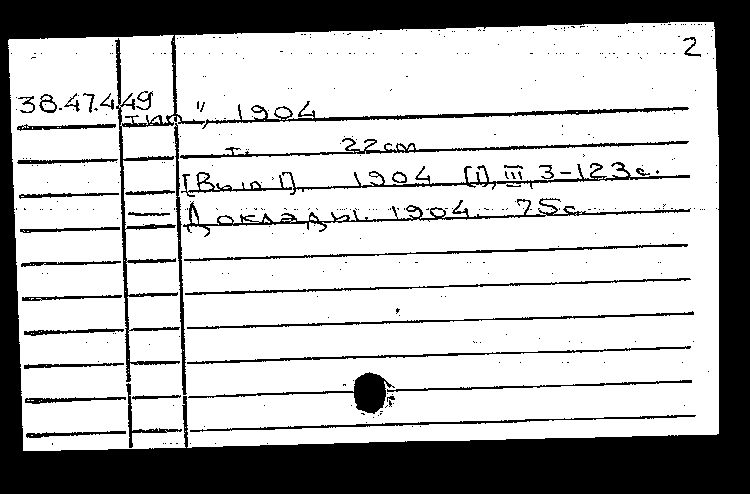 2
38.47.449
тип", 1904
т. 22 cm
[Вып 1]. 1904 [1], III, 3-123 с.
Доклады. 1904. 75 с